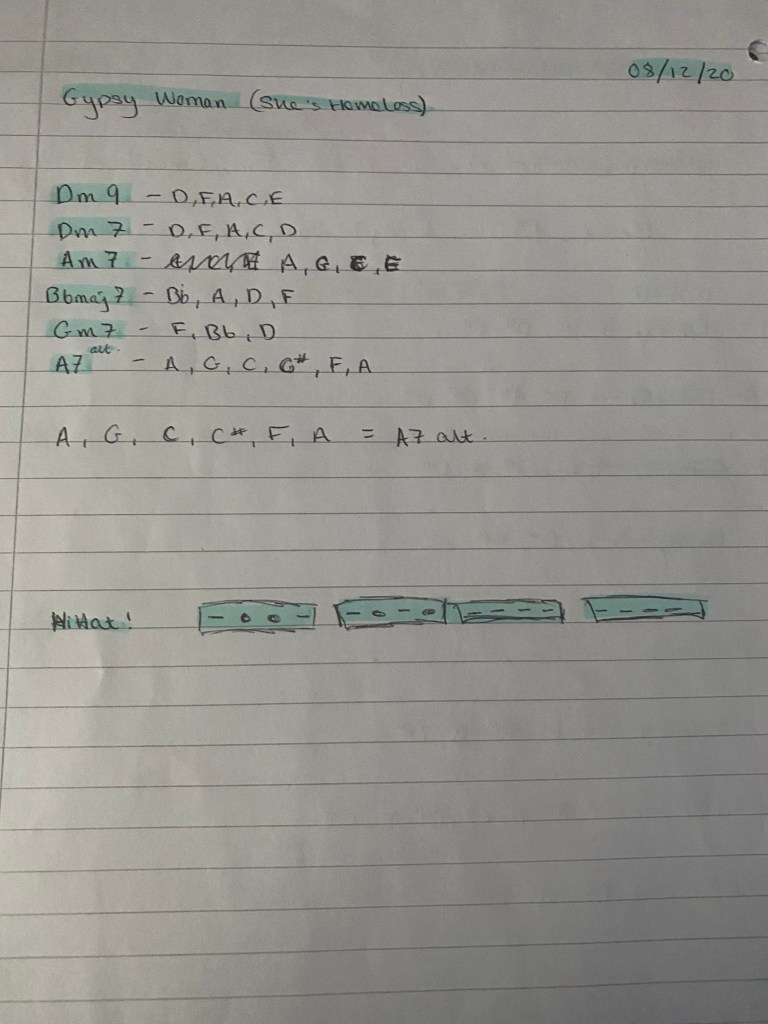 08/12/20
Gypsy Woman (She's Homeless).
Dm 9 - D, F, A, C, E
Dm 7 - D, F, A, C, D
Am 7 - A, G, E, E
Bbmaj 7 - Bb, A, D, F
Gm 7 - F, Bb, D
A7 alt. - A, G, C, G#, F, A
A, G, C, C#, F, A = A7 alt.
HiHat! - o o - - o - o - - - - - - - -